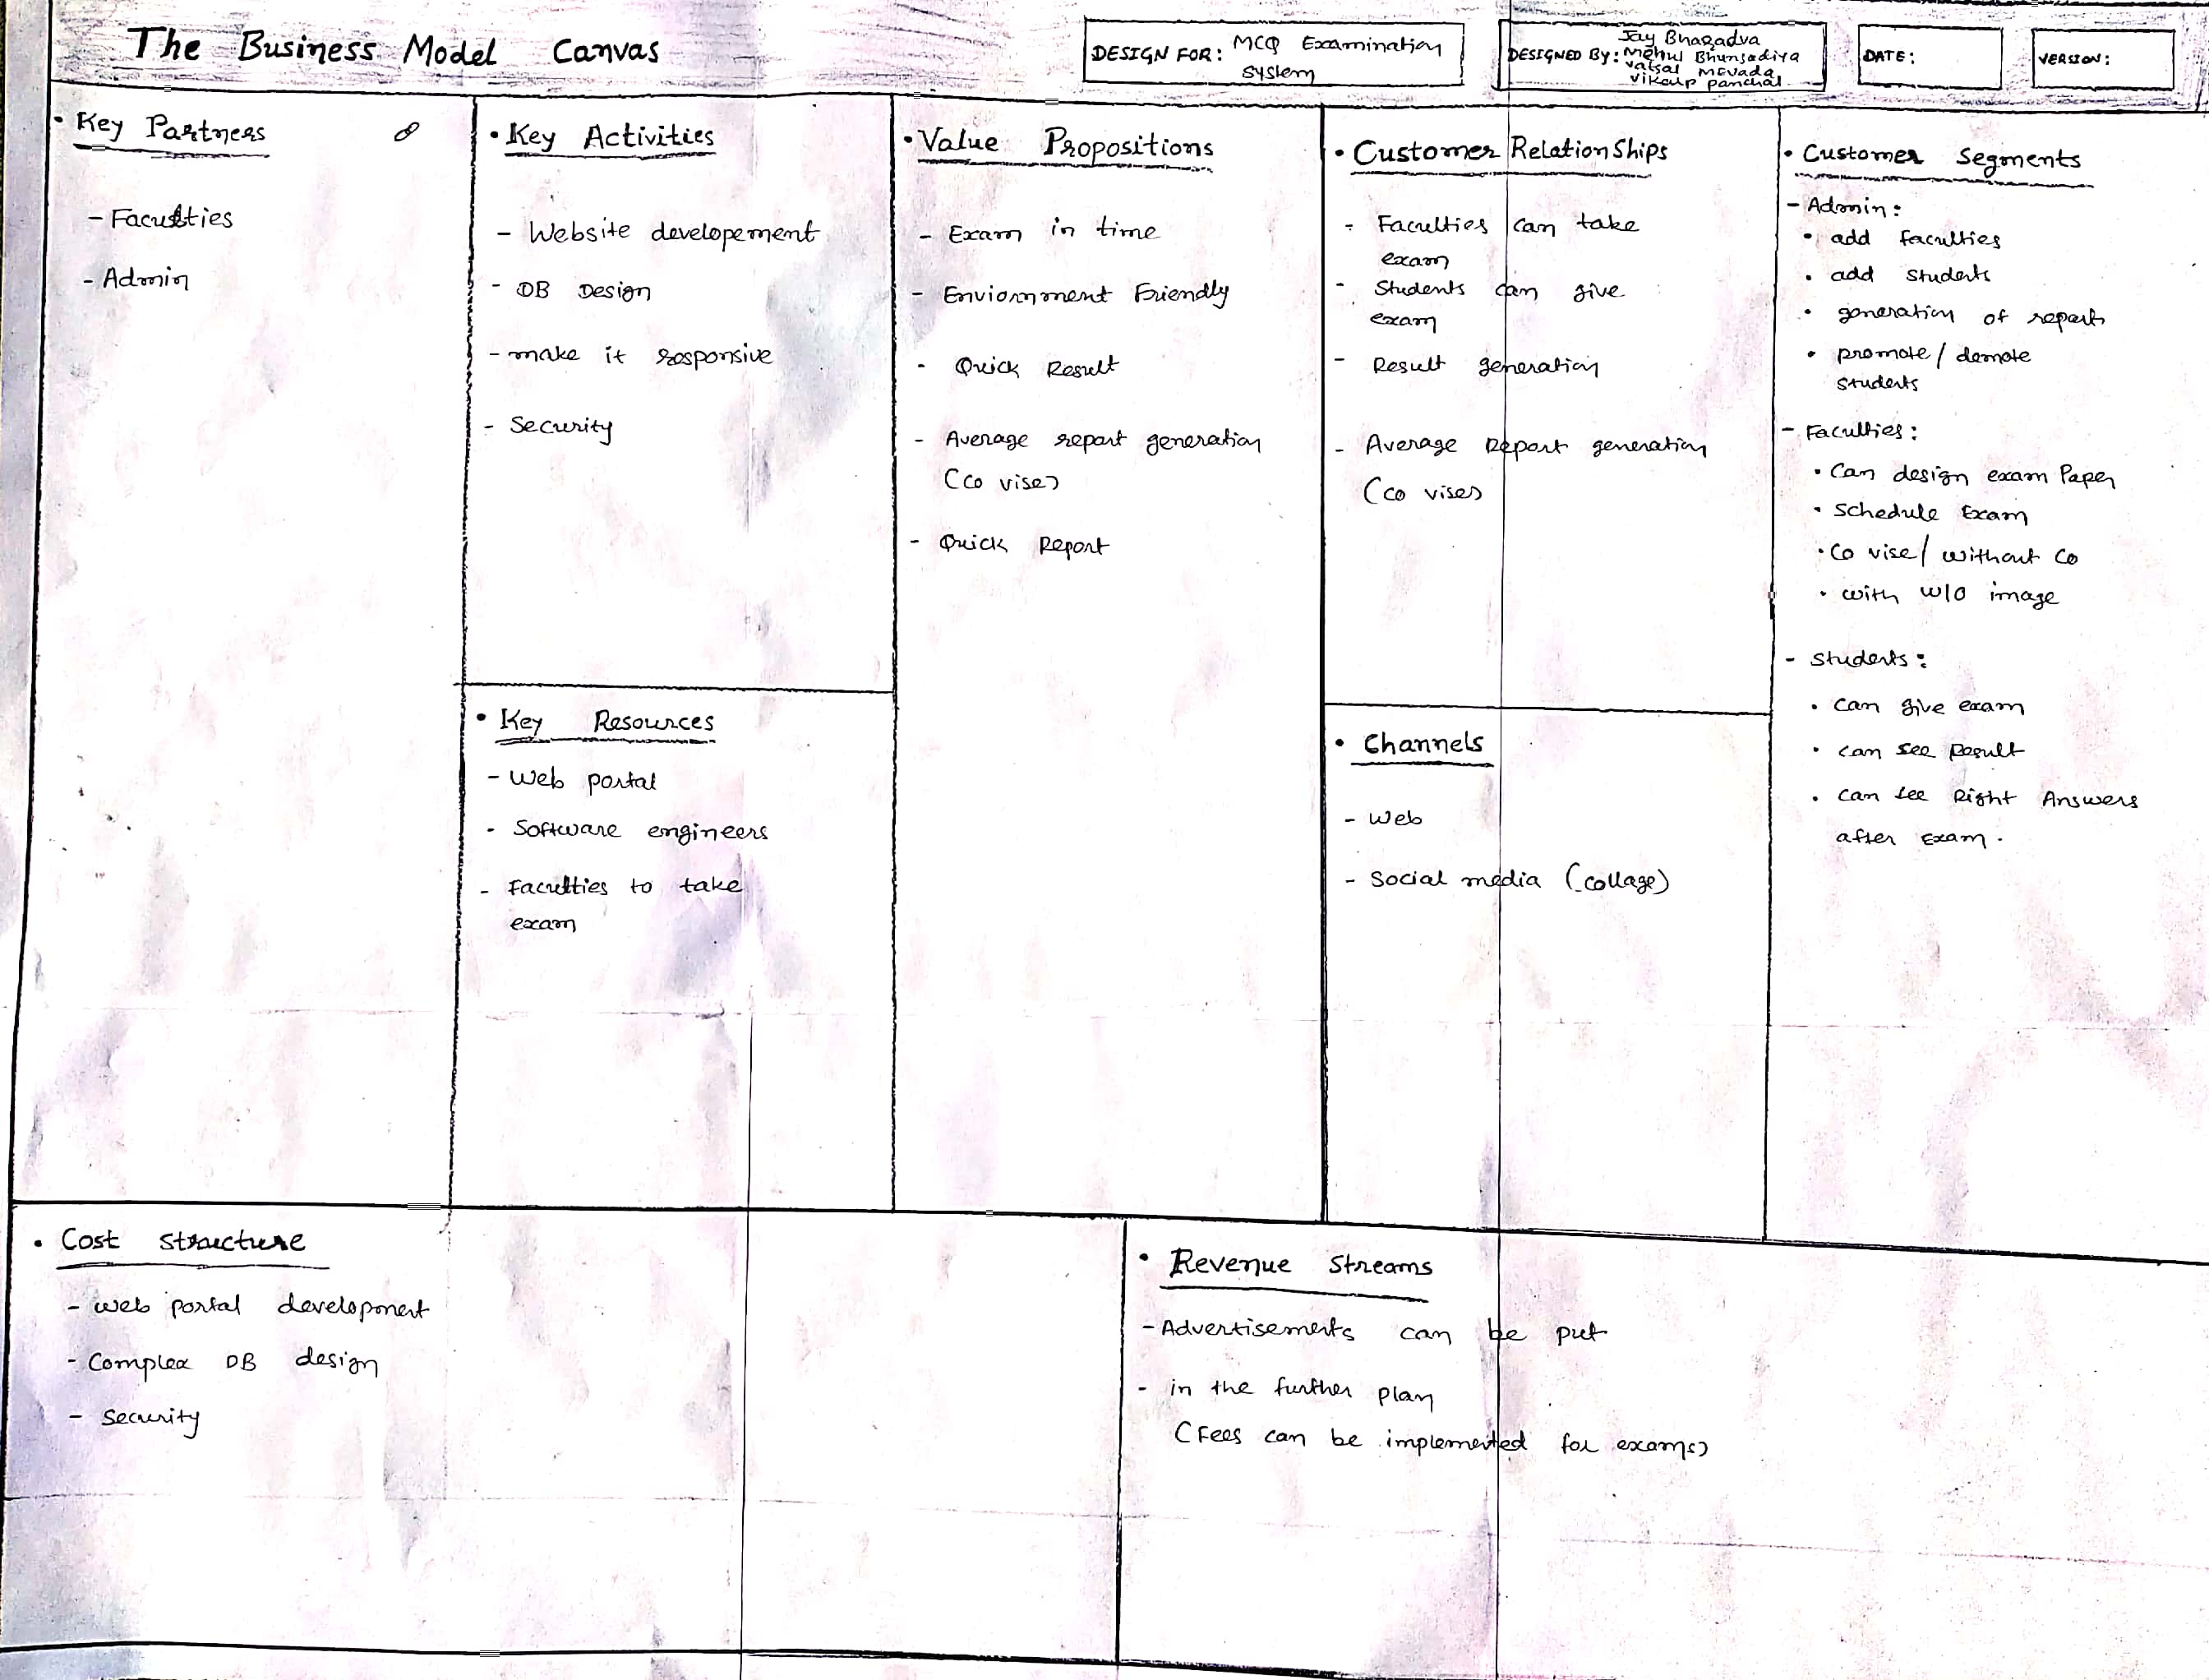 The Business Model Canvas
DESIGN FOR: MCQ Examination
system
Jay Bhagadva
DESIGNED By: Mehul Bhunsadiya
Vatsal Mevada
Vikalp panchal
DATE:
VERSION:
• Key Partners
- Faculties
- Admin
• Key Activities
- Website developement
- DB Design
- make it responsive
- Security
• Key Resources
- Web portal
- Software engineers
- Faculties to take
exam
• Value Propositions
- Exam in time
- Enviornment Friendly
- Quick Result
- Average report generation
(co vise)
- Quick Report
• Customer RelationShips
- Faculties can take
exam
- Students can give
exam
- Result generation
- Average Report generation
(co vise)
• Channels
- Web
- Social media (collage)
• Customer Segments
- Admin:
• add faculties
• add students
• generation of reports
• promote/demote
students
- Faculties:
• Can design exam Paper
• Schedule Exam
• Co vise/ without Co
• with w/o image
- Students:
• can give exam
• can see Result
• can see Right Answers
after Exam.
• Cost structure
- web portal development
- Complex DB design
- security
• Revenue Streams
- Advertisements can be put
- in the further plan
(Fees can be implemented for exams)